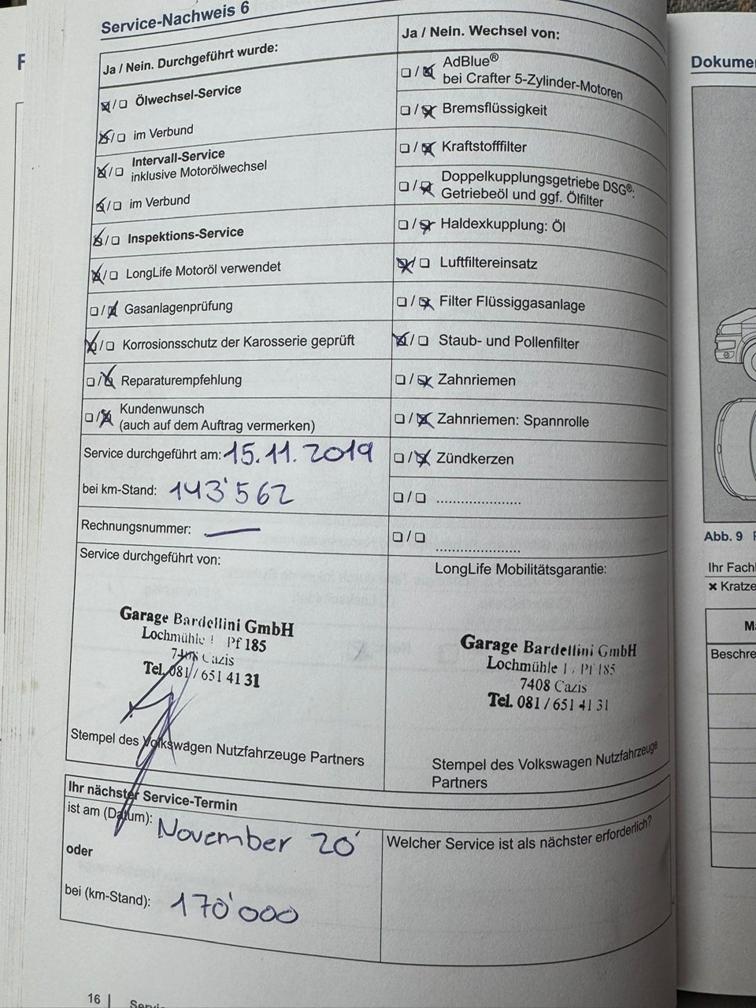 Service-Nachweis 6
Ja / Nein. Durchgeführt wurde:
☒/☐ Ölwechsel-Service
☒/☐ im Verbund
☒/☐ Intervall-Service
inklusive Motorölwechsel
☒/☐ im Verbund
☒/☐ Inspektions-Service
☒/☐ LongLife Motoröl verwendet
☐/☒ Gasanlagenprüfung
☒/☐ Korrosionsschutz der Karosserie geprüft
☐/☒ Reparaturempfehlung
☐/☒ Kundenwunsch
(auch auf dem Auftrag vermerken)
Service durchgeführt am: 15.11.2019
bei km-Stand: 143'562
Rechnungsnummer: —
Service durchgeführt von:
Garage Bardellini GmbH
Lochmühle Pf 185
Cazis
Tel. 081 / 651 41 31
Stempel des Volkswagen Nutzfahrzeuge Partners
Ja / Nein. Wechsel von:
☐/☒ AdBlue®
bei Crafter 5-Zylinder-Motoren
☐/☒ Bremsflüssigkeit
☐/☒ Kraftstofffilter
☐/☒ Doppelkupplungsgetriebe DSG®:
Getriebeöl und ggf. Ölfilter
☐/☒ Haldexkupplung: Öl
☒/☐ Luftfiltereinsatz
☐/☒ Filter Flüssiggasanlage
☒/☐ Staub- und Pollenfilter
☐/☒ Zahnriemen
☐/☒ Zahnriemen: Spannrolle
☐/☒ Zündkerzen
☐/☐ ......................
☐/☐ ......................
LongLife Mobilitätsgarantie:
Garage Bardellini GmbH
Lochmühle Pf 185
7408 Cazis
Tel. 081 / 651 41 31
Stempel des Volkswagen Nutzfahrzeuge
Partners
Ihr nächster Service-Termin
ist am (Datum): November 20'
oder
bei (km-Stand): 170'000
Welcher Service ist als nächster erforderlich?
16 | Servi
F
Dokume
Abb. 9
Ihr Fach
× Kratze
M
Beschre